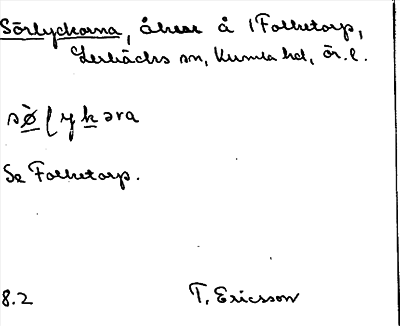 Sörlyckorna, åkrar å 1 Folketorp,
Lerbäcks sn, Kumla hd, Ör. l.
sø̀ɭykəra
Se Folketorp.
8.2 T. Ericsson